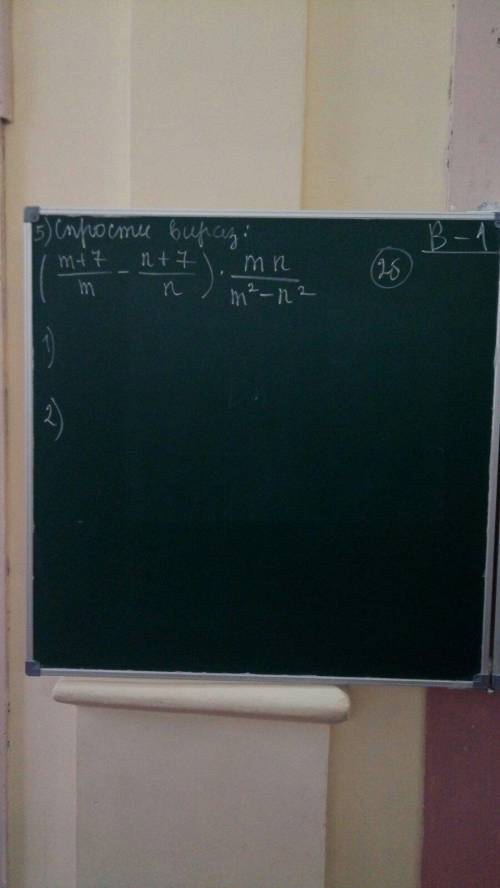 5) Спрости вираз:
В-1
( (m+7)/m - (n+7)/n ) · mn/(m²-n²)
2б
1)
2)